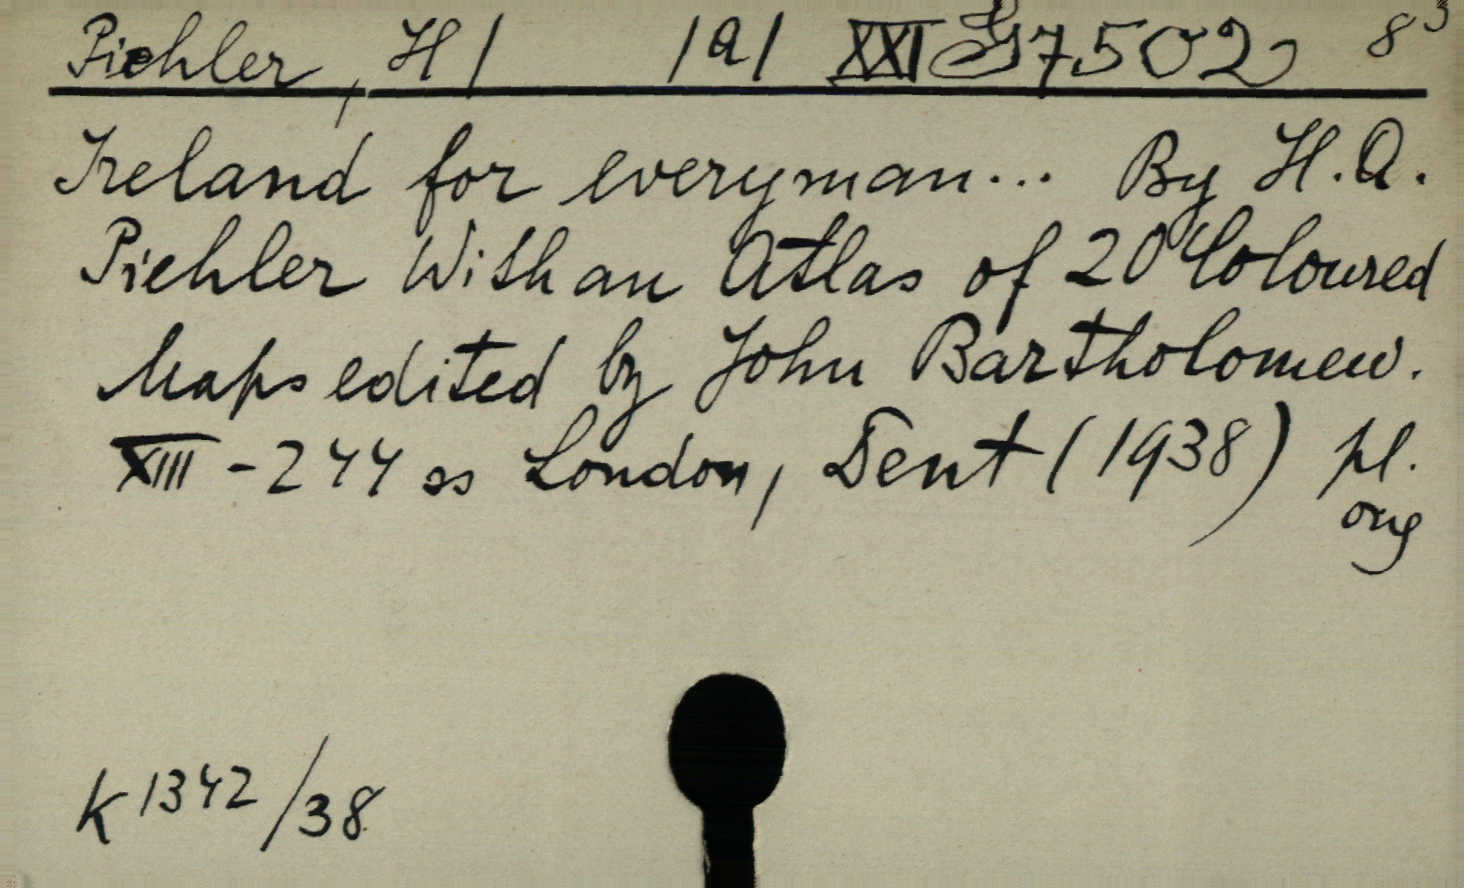 Piehler, H / /a/ XXI G 7502 8³
Ireland for everyman... By H.A.
Piehler With an Atlas of 20 Coloured
Maps edited by John Bartholomew.
XIII-244 ss London, Dent (1938) pł.
oryg
K 1342/38